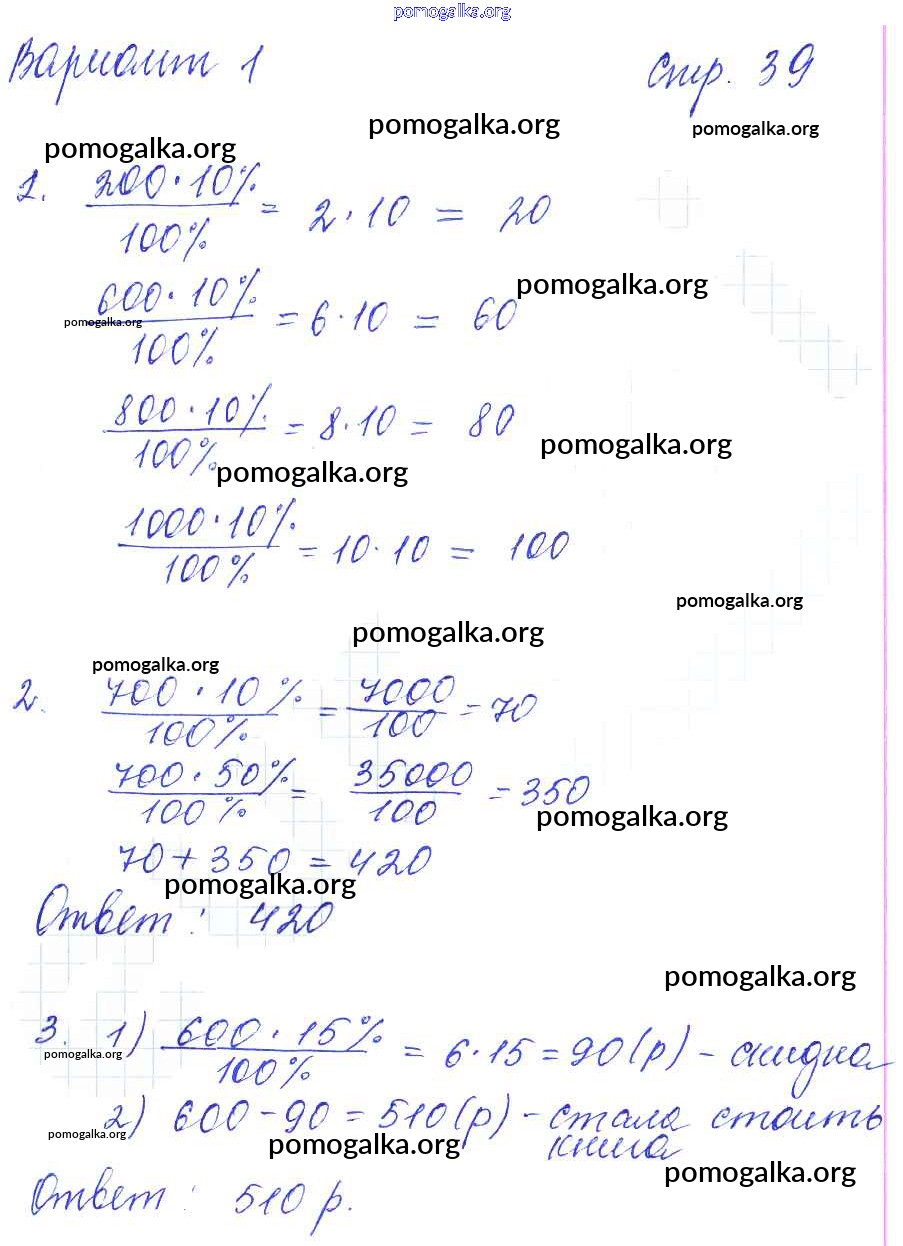 pomogalka.org
Вариант 1 Стр. 39
pomogalka.org pomogalka.org
pomogalka.org
1. 200 · 10% / 100% = 2 · 10 = 20
pomogalka.org
600 · 10% / 100% = 6 · 10 = 60
pomogalka.org
800 · 10% / 100% = 8 · 10 = 80
pomogalka.org
pomogalka.org
1000 · 10% / 100% = 10 · 10 = 100
pomogalka.org
pomogalka.org
pomogalka.org
2. 700 · 10% / 100% = 7000 / 100 = 70
700 · 50% / 100% = 35000 / 100 = 350
pomogalka.org
70 + 350 = 420
pomogalka.org
Ответ: 420
pomogalka.org
3. 1) 600 · 15% / 100% = 6 · 15 = 90 (р) - скидка
pomogalka.org
2) 600 - 90 = 510 (р) - стала стоить
книга
pomogalka.org pomogalka.org
pomogalka.org
Ответ: 510 р.